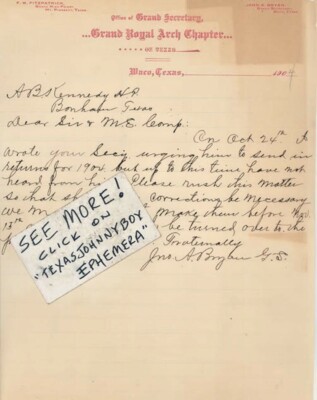 Office of Grand Secretary,
...Grand Royal Arch Chapter...
OF TEXAS
Waco, Texas, 1904
A B Kennedy H P
Bonham Texas
Dear Sir & M.E. Comp:
On Oct 24th I
wrote your Secy urging him to send in
returns for 1904, but up to this time have not
heard from Please rush this matter
so that corrections be necessary
we make them before Nov.
13th be turned over to the
Fraternally
Jno A. Bryan G.S.
SEE MORE!
CLICK ON
"TEXASJOHNNYBOY
EPHEMERA"